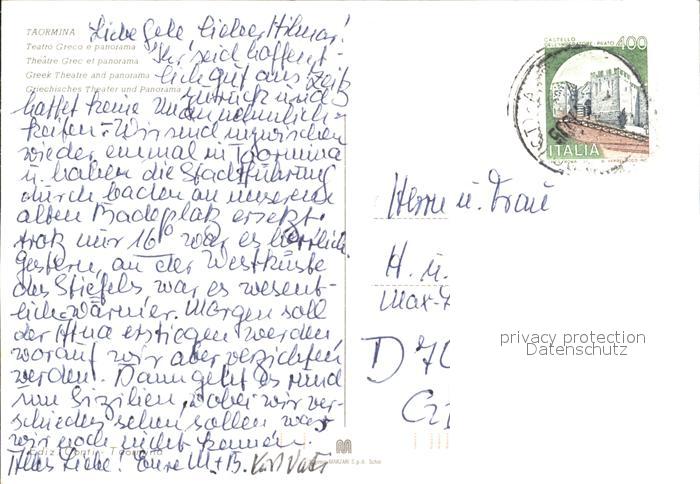 TAORMINA
Teatro Greco e panorama
Théâtre Grec et panorama
Greek Theatre and panorama
Griechisches Theater und Panorama
Liebe Gele lieber Hilmar!
Ihr seid hoffent-
lich gut aus Zeitz
zurück und
hattet keine Unannehmlich-
keiten. Wir sind inzwischen
wieder einmal in Taormina
u. haben die Stadtführung
durch baden an unserem
alten Badeplatz ersetzt.
trotz nur 16° war es herrlich.
Gestern, an der Westküste
des Stiefels war es wesent-
lich wärmer. Morgen soll
der Ätna erstiegen werden,
worauf wir aber verzichten
werden. Dann geht es rund
um Sizilien, wobei wir ver-
schieden sehen sollen was
wir noch nicht kennen.
Alles Liebe! Eure M + B.
Ediz. Conti - Taormina
CASTELLO
PRATO
400
ITALIA
Herrn u. Frau
H. u.
Max-
D 70
privacy protection
Datenschutz